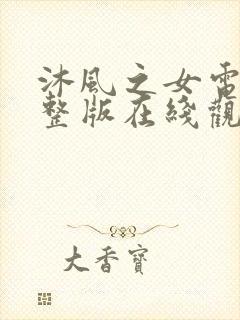 沐風之女電
整版在綫觀
大香寶